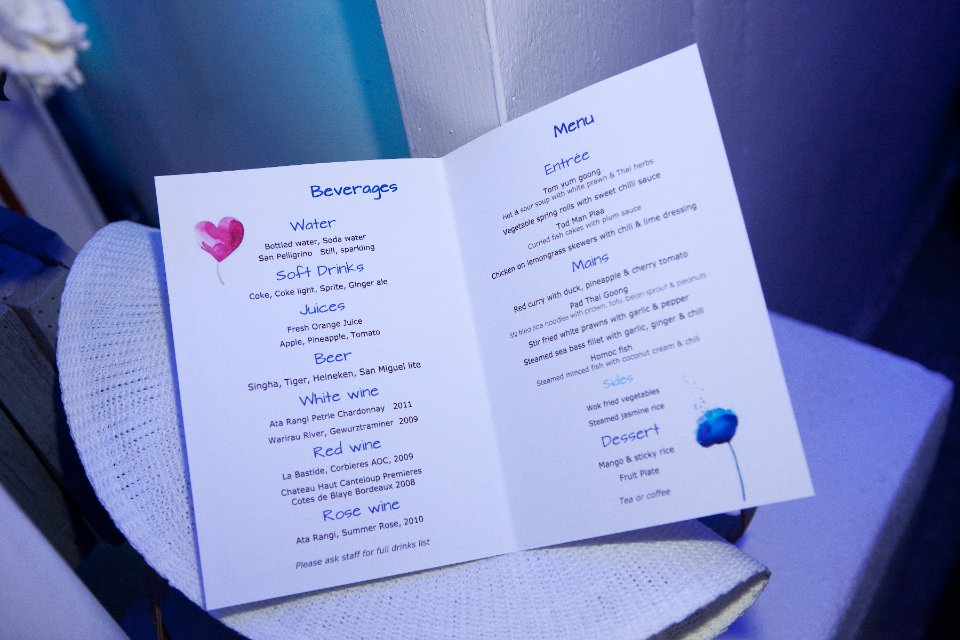 Beverages
Water
Bottled water, Soda water
San Pelligrino Still, sparkling
Soft Drinks
Coke, Coke light, Sprite, Ginger ale
Juices
Fresh Orange Juice
Apple, Pineapple, Tomato
Beer
Singha, Tiger, Heineken, San Miguel lite
White wine
Ata Rangi Petrie Chardonnay 2011
Warirau River, Gewurztraminer 2009
Red wine
La Bastide, Corbieres AOC, 2009
Chateau Haut Canteloup Premieres
Cotes de Blaye Bordeaux 2008
Rose wine
Ata Rangi, Summer Rose, 2010
Please ask staff for full drinks list
Menu
Entrée
Tom yum goong
Hot & sour soup with white prawn & Thai herbs
Vegetable spring rolls with sweet chilli sauce
Tod Man Plaa
Curried fish cakes with plum sauce
Chicken on lemongrass skewers with chili & lime dressing
Mains
Red curry with duck, pineapple & cherry tomato
Pad Thai Goong
Stir fried rice noodles with prawn, tofu, bean sprout & peanuts
Stir fried white prawns with garlic & pepper
Steamed sea bass fillet with garlic, ginger & chili
Homoc fish
Steamed minced fish with coconut cream & chili
Sides
Wok fried vegetables
Steamed jasmine rice
Dessert
Mango & sticky rice
Fruit Plate
Tea or coffee